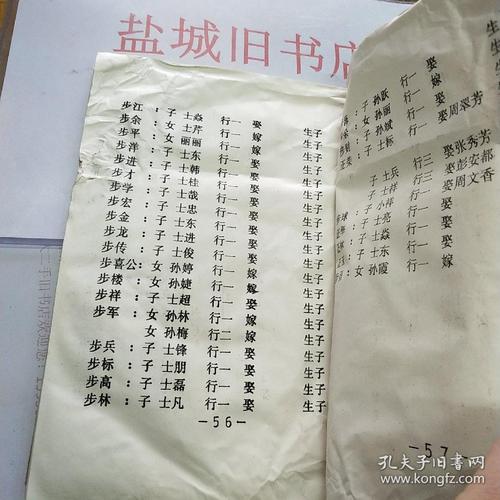 盐城旧书店
步江：子 士焱 行一 娶 生子
步余：女 士芹 行一 嫁 生子
步平：女 士丽 行一 嫁 生子
步洋：子 士东 行一 娶 生子
步进：子 士韩 行一 娶 生子
步才：子 士桂 行一 娶 生子
步学：子 士哉 行一 娶 生子
步宏：子 士忠 行一 娶 生子
步金：子 士东 行一 娶 生子
步龙：子 士进 行一 娶 生子
步传：子 士俊 行一 娶 生子
步喜公：女 孙婷 行一 嫁 生子
步楼：女 孙婕 行一 嫁 生子
步祥：子 士超 行一 娶 生子
步军：女 孙林 行一 嫁 生子
女 孙梅 行二 嫁 生子
步兵：子 士锋 行一 娶 生子
步标：子 士朋 行一 娶 生子
步高：子 士磊 行一 娶 生子
步林：子 士凡 行一 娶 生子
-56-
子 孙跃 行一 娶
女 孙丽 行一 嫁
子 孙斌 行一 娶
子 士标 行一 娶周翠芳
子 士兵 行三 娶张秀芳
子 士祥 行三 娶彭安都
子 小祥 行一 娶周文香
子 士亮 行一 娶
子 士焱 行一 娶
子 士东 行一 娶
女 孙霞 行一 嫁
-57-
孔夫子旧书网
kongfz.com